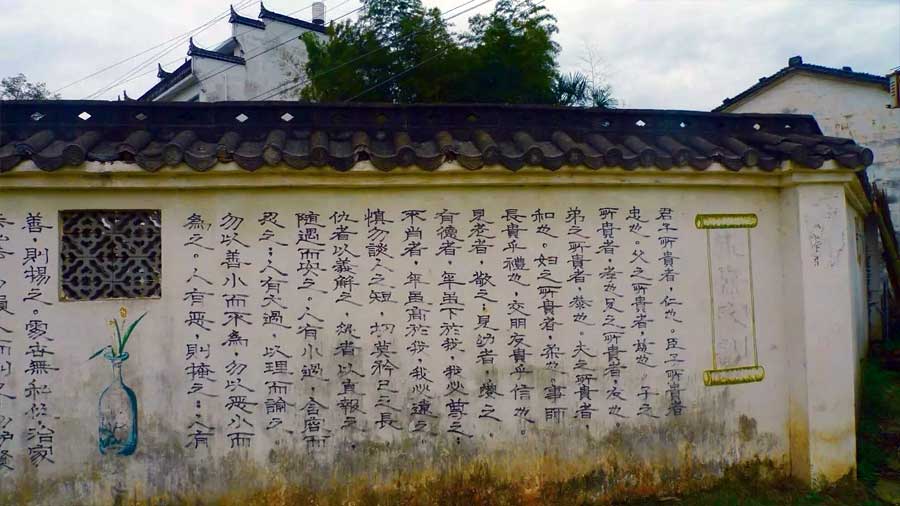 君之所貴者，仁也。臣之所貴者，
忠也。父之所貴者，慈也。子之
所貴者，孝也。兄之所貴者，友也。
弟之所貴者，恭也。夫之所貴者，
和也。婦之所貴者，柔也。事師
長貴乎禮也，交朋友貴乎信也。
見老者，敬之；見幼者，愛之。
有德者，年雖下於我，我必尊之；
不肖者，年雖高於我，我必遠之。
慎勿談人之短，切莫矜己之長。
仇者以義解之，怨者以直報之，
隨遇而安之。人有小過，含容而
忍之；人有大過，以理而論之。
勿以善小而不為，勿以惡小而
為之。人有惡，則掩之；人有
善，則揚之。處世無私仇，治家